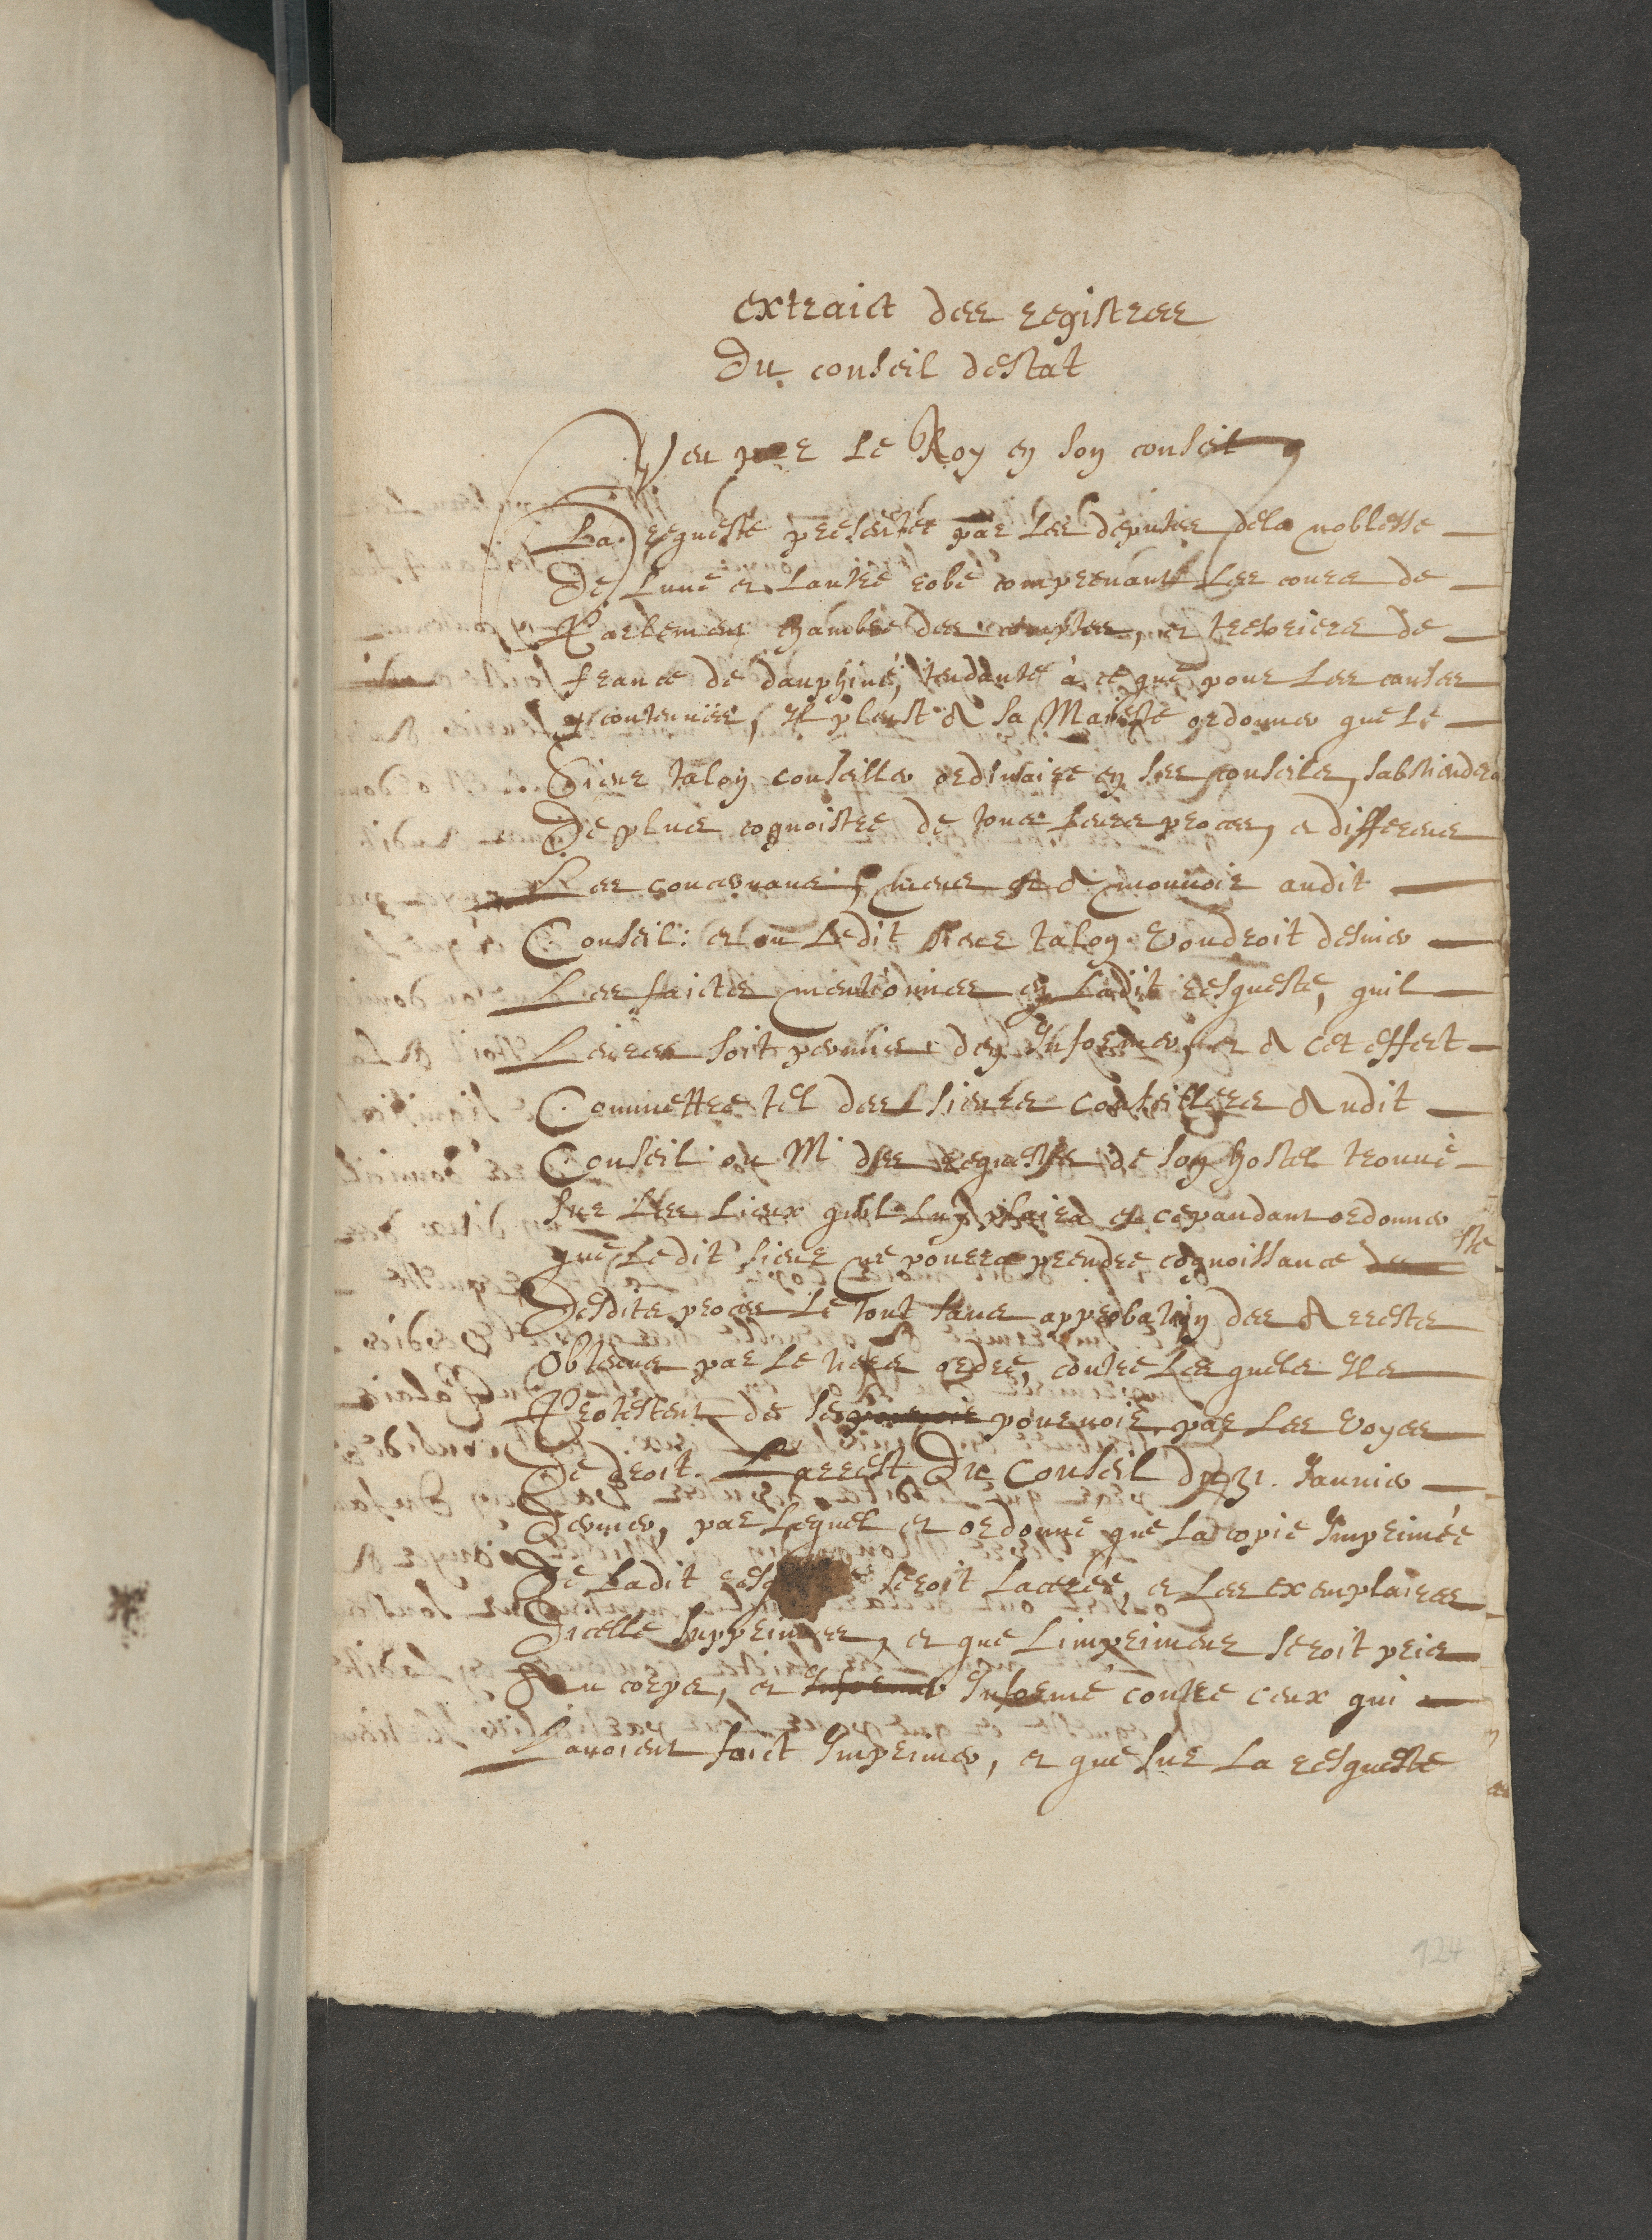 extraict des registres
Du conseil destat
Veu par Le Roy en son conseil
La requeste presentée par Les deputes dela noblesse
De Lune et Lautre robe comprenant Les cours de
Parlement chambre des comptes, et tresoriers de
france de dauphiné, tendante à ce que pour Les causes
y contenues, Il pleust A sa Majesté ordonner que Le
Sieur talon conseiller ordinaire en ses conseils, sabstiendra
De plus cognoistre de tous Leurs proces, et differens
Les concernans, meus et A mouvoir audit
Conseil: et ou Ledit sieur talon voudroit desnier
Les faictz mentionnes en Ladit resqueste, quil
Leurs soit permis den Informer, et A cet effect
Commettre tel des sieurs conseillers Audit
Conseil ou Mr des requestes de son hostel trouvé
sur Les Lieux quil Luy plaira et cepandant ordonner
que Ledit sieur ne pourra prendre cognoissance
Desdits proces Le tout sans approbation des Arrests
Obtenus par Le tiers ordre, contre Lesquels Ils
Protestent de se pourvoir par Les voyes
De droit. Larrest Du Conseil du 31. Januier
Dernier, par Lequel et ordonné que La copie Imprimée
De Ladit seroit Lacerée, et Les exemplaires
Dicelle supprimees, et que Limprimeur seroit pris
Au corps, et Informer Informé contre ceux qui
Lauoient faict Imprimer, et que sur La resqueste
124